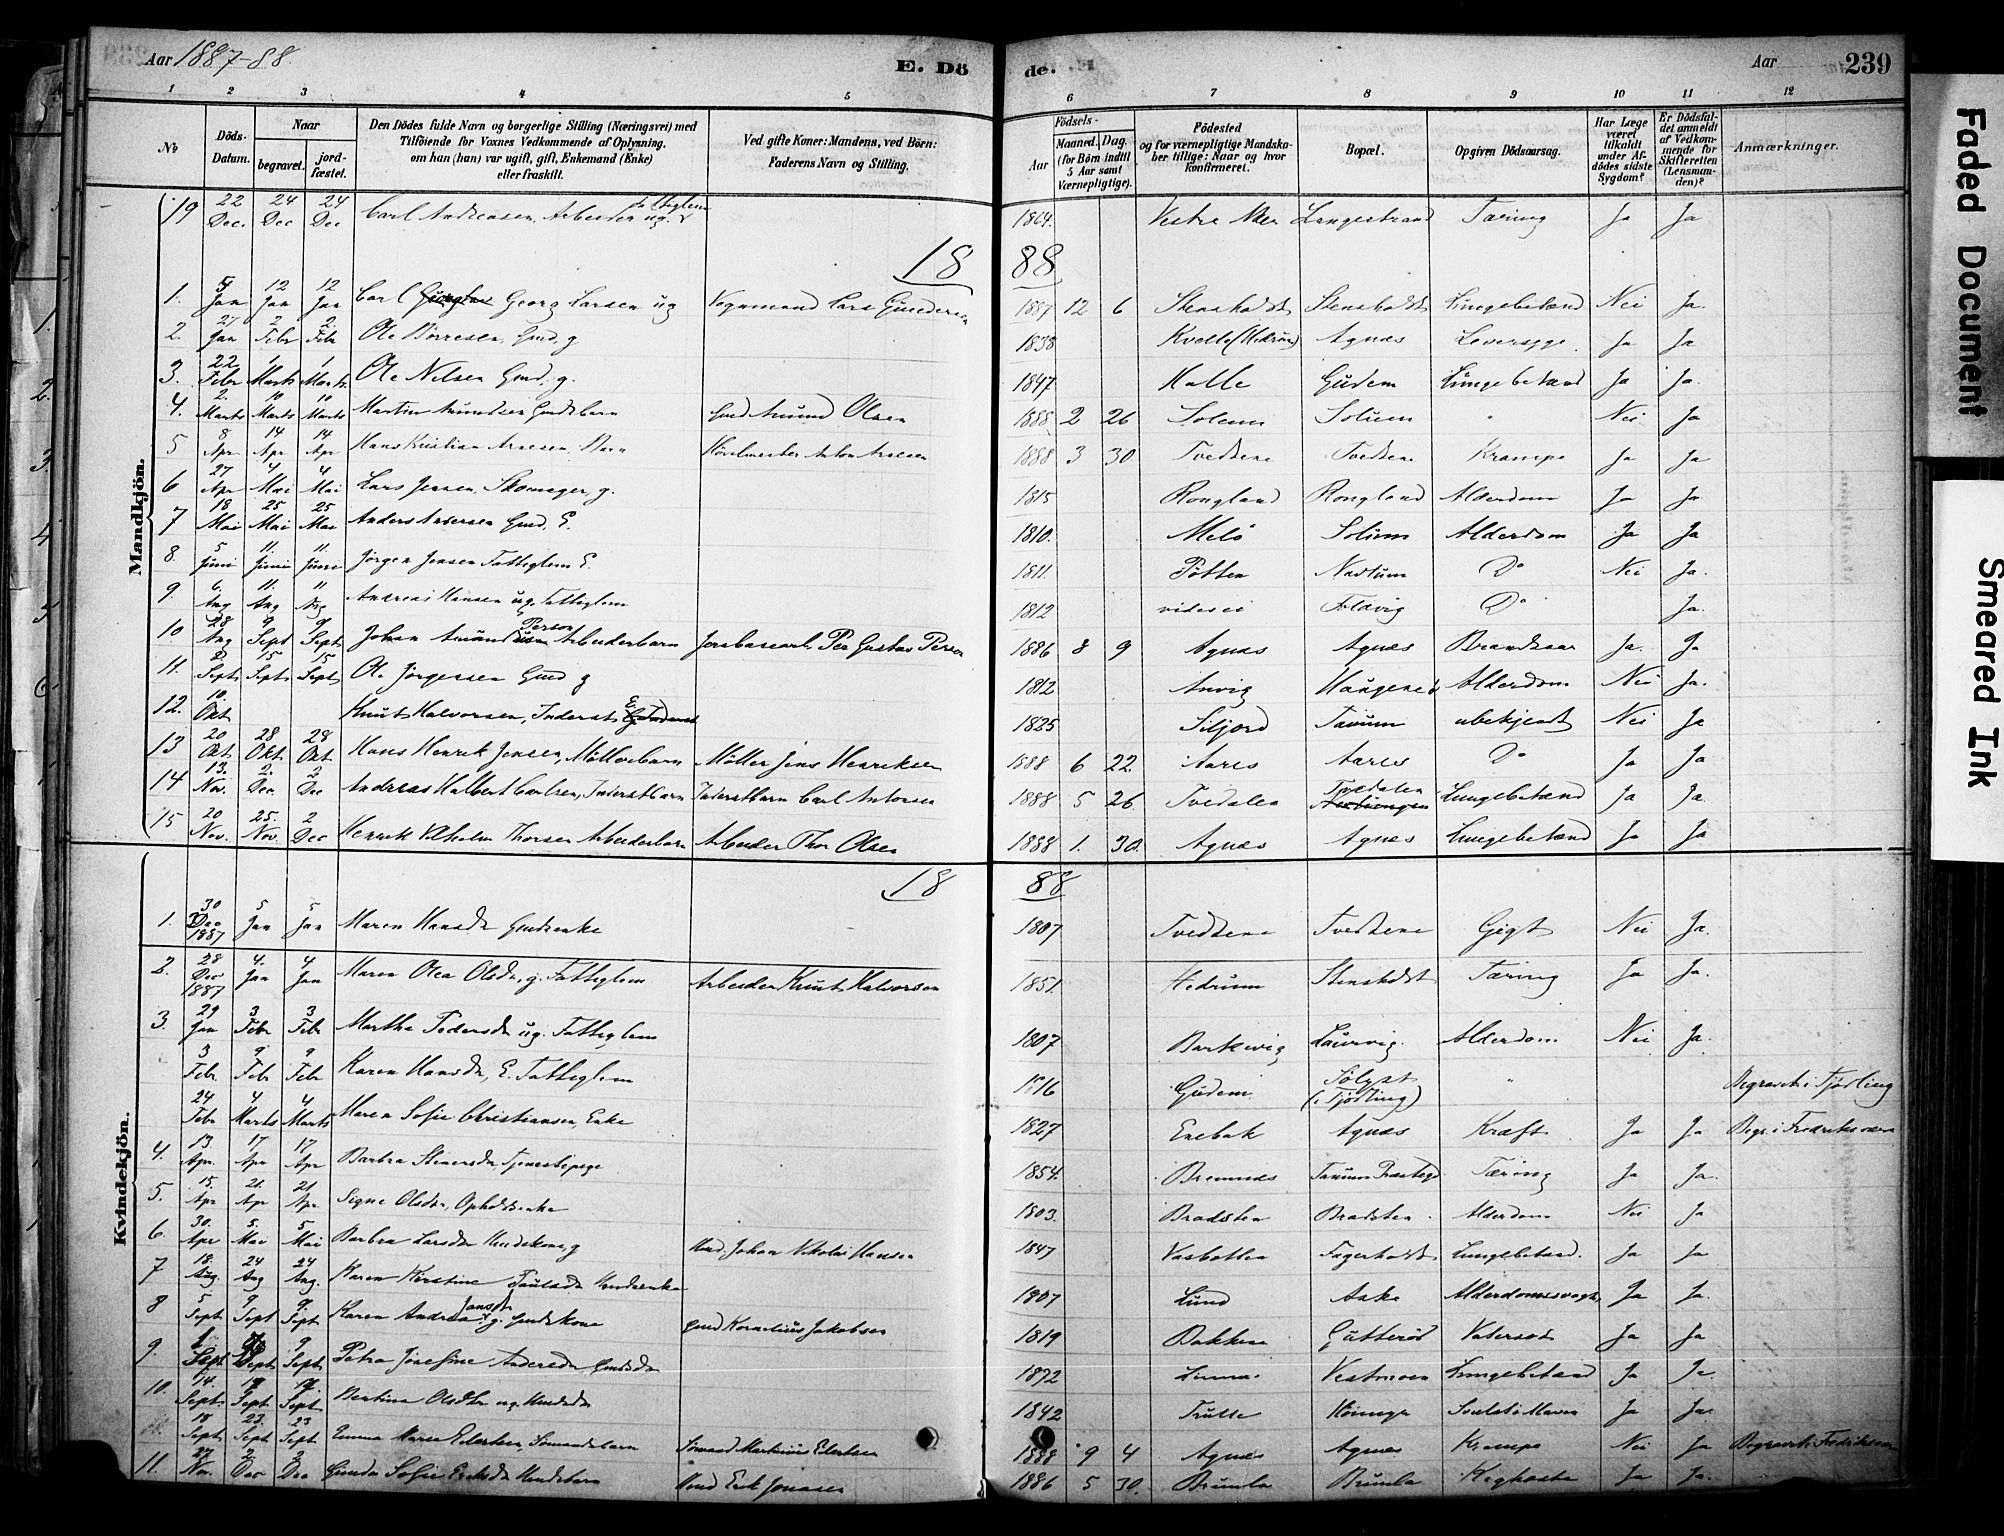 Aar 1887-88.
E. Dö
de.
Aar
239
1 2 3 4 5 6 7 8 9 10 11 12
№
Döds-Datum.
Naar
begravet.
jord-fæstet.
Den Dödes fulde Navn og borgerlige Stilling (Næringsvei) med Tilföiende for Voxnes Vedkommende af Oplysning, om han (hun) var ugift, gift, Enkemand (Enke) eller fraskilt.
Ved gifte Koner: Mandens, ved Börn: Faderens Navn og Stilling.
Födsels-
Aar
Maaned. Dag.
(for Börn indtil 5 Aar samt Værnepligtige).
Födested og for værnepligtige Mandskaber tillige: Naar og hvor konfirmeret.
Bopæl.
Opgiven Dödsaarsag.
Har Læge været tilkaldt under Afdödes sidste Sygdom?
Er Dödsfaldet anmeldt af Vedkommende for Skifteretten (Lensmanden)?
Anmærkninger.
Mandkjön.
19 22 Dec. 24 Dec 24 Dec Carl Andreasen, Arbeider ug. Fattiglem 1864. Vestre Langestrand Tæring Ja Ja
1888
1. Jan 12 Jan 12 Jan Carl Georg Larsen ug Vognmand Lars Gundersen 1887 12 6 Stensholdt Stensholdt Lungebetænd Nei Ja.
2. 27 Jan 2 Febr 2. Febr Ole Börresen, Gmd, g 1838 Kvelle (Hedrum) Agnæs Leversyge. Ja Ja
3. 22 Febr 1 Marts 1 Marts Ole Nilsen Gmd, g. 1847 Halle Gudem Lungebetænd Ja Ja.
4. 2. Marts 10 Marts 10 Marts Martin Amundsen Gmdsbarn Gmd Amund Olsen 1888 2 26 Solum Solum " Nei Ja
5 8 Apr 14 Apr 14 Apr Hans Kristian Barn Anton 1888 3 30 Tvedtene Tvedtene Krampe Ja Ja
6 27 Apr 4 Mai 4 Mai Lars Jensen, Skomager, g. 1815 Rongland Rongland Alderdom Ja Ja
7 18 Mai 25 Mai 25 Mai Anders Andersen Gmd, E. 1810. Melö Solum Alderdom Ja Ja
8. 5 Juni 11. Juni 11. Juni Jörgen Jensen Fattiglem E. 1811. Pötten Navlum Do Nei Ja.
9 6. Aug 11. Aug 11 Aug Andreas Hansen ug. Fattiglem 1812 Do Ja.
10 28 Aug 9 Sept 9 Sept Johan Amandus Person Arbeiderbarn Jernbanearb. Per Gustav Person 1886 8 9 Agnæs Agnæs Brandsaar Ja. Ja
11. Sept 15 Sept 15 Sept Ole Jörgensen Gmd g 1812 Anvig Haugene Alderdom Nei Ja.
12. 10. Okt Knut Halvorsen, Inderst, E 1825 Siljord Tanum ubekjendt Nei Ja
13 20 Okt 28 Okt 28 Okt Hans Henrik Jensen, Möllerbarn Möller Jens Henriksen 1888 6 22. Aares Aares Do Ja Ja
14 13. Nov. 2. Dec. 2 Dec Andreas Halbert Carlsen, Inderstbarn Inderstbarn Carl Antonsen 1888 5 26 Tvedalen Tvedalen Lungebetænd Ja Ja
15 20 Nov. 25. Nov. 2 Dec Henrik Vilhelm Thorsen Arbeiderbarn Arbeider Thor Olsen 1888 1. 30. Agnæs Agnæs Lungebetænd Ja Ja
Kvindekjön.
1888
1. 30 Dec 1887 5 Jan 5 Jan Maren Hansdr Gmdsenke 1807 Tvedtene Tvedtene Gigt Nei Ja.
2. 28 Dec 1887 4. Jan 4 Jan Maren Olea Olsdr, g. Fattiglem Arbeider Knut Halvorsen 1851. Hedrum Stensholdt Tæring Ja Ja.
3. 29 Jan 3 Febr 3 Febr Marthe Pedersdr ug. Fattiglem 1807 Barkevig Laurvig. Alderdom Nei Ja.
3 Febr. 9 Febr 9 Febr Karen Hansdr, E. Fattiglem 1816 Gudem. Sölyst (i Tjödling) " Begravet i Tjödling
24 Febr 4 Marts 4 Marts Maren Sofie Christiansen, Enke 1827 Enebak Agnæs Kræft Ja Ja Begr. i Fredriksværn
4. 13 Apr. 17 Apr 17 Apr Barbra Steensdr Tjenestepige 1854. Bremnæs Tanum Præstegd Tæring Ja Ja.
5. 15. Apr 21. Apr 21 Apr. Signe Olsdr, Opholdsenke 1803. Bradsten Bradsten. Alderdom Nei Ja
6 30. Apr 5. Mai 5 Mai Barbra Larsdr Hmdskone, g Hmd. Johan Nikolai Hansen 1847 Vasbotten Fagerholdt Lungebetænd. Ja Ja
7 18. Aug. 24 Aug 24 Aug. Karen Kirstine Paulsdr Hmdsenke 1807 Lund Aske Alderdomssvagh. Ja Ja.
8 5 Sept 9 Sept 9. Sept Karen Andrea Jansdr g. Gmdskone Gmd Kornelius Jakobsen 1819 Bakken Gutteröd Vatersot Ja Ja
9. 1 Sept Sept 9 Sept Petra Josefine Andersdr Gmdsdr 1872 Vestmoen Lungebetænd Ja Ja.
10. 14. Sept. Sept Sept Bertine Olsdtr ug. Hmdsdr 1842 Ja Ja.
18 Sept 23. Sept 23 Sept Emma Marie Edertsen Sömandsbarn Sömand Martinius Edertsen 1888 9 4 Agnæs Agnæs Krampe Nei Ja Begravet i Fredriksværn
11. 27 Nov. 2 Dec 2 Dec Gunda Sofie Eriksdr Hmdsbarn Hmd Erik Jonasen 1886 5 30. Brunla Brunla Kighoste Ja Ja.
Faded Document
Smeared Ink